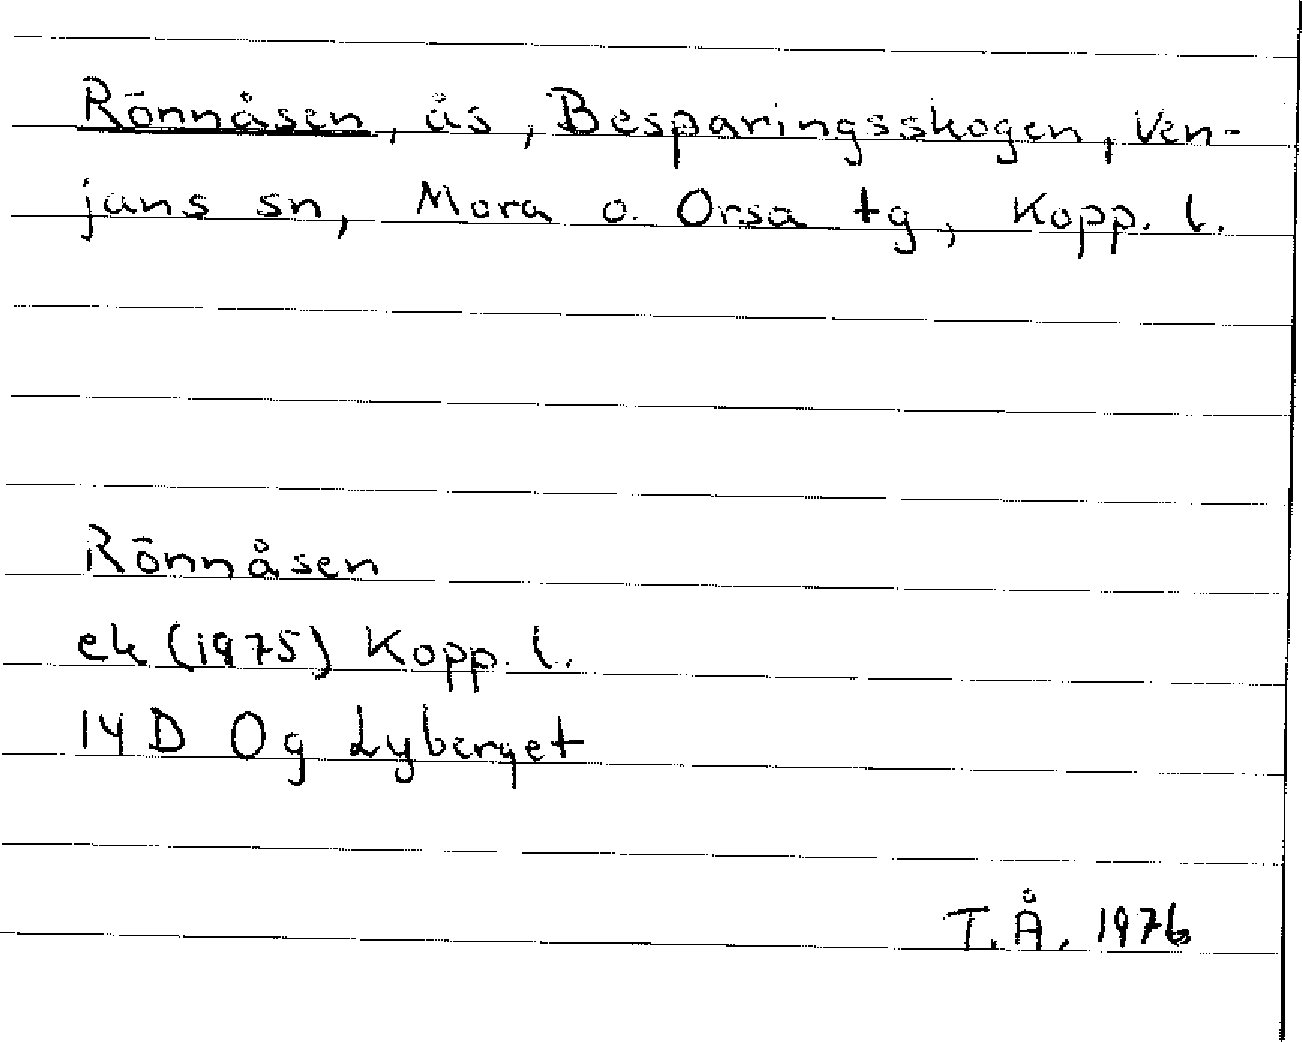 Rönnåsen, ås, Besparingsskogen, Ven-
jans sn, Mora o. Orsa tg, Kopp. l.
Rönnåsen
ek (1975) Kopp. l.
14 D Og Lyberget
T.Å. 1976